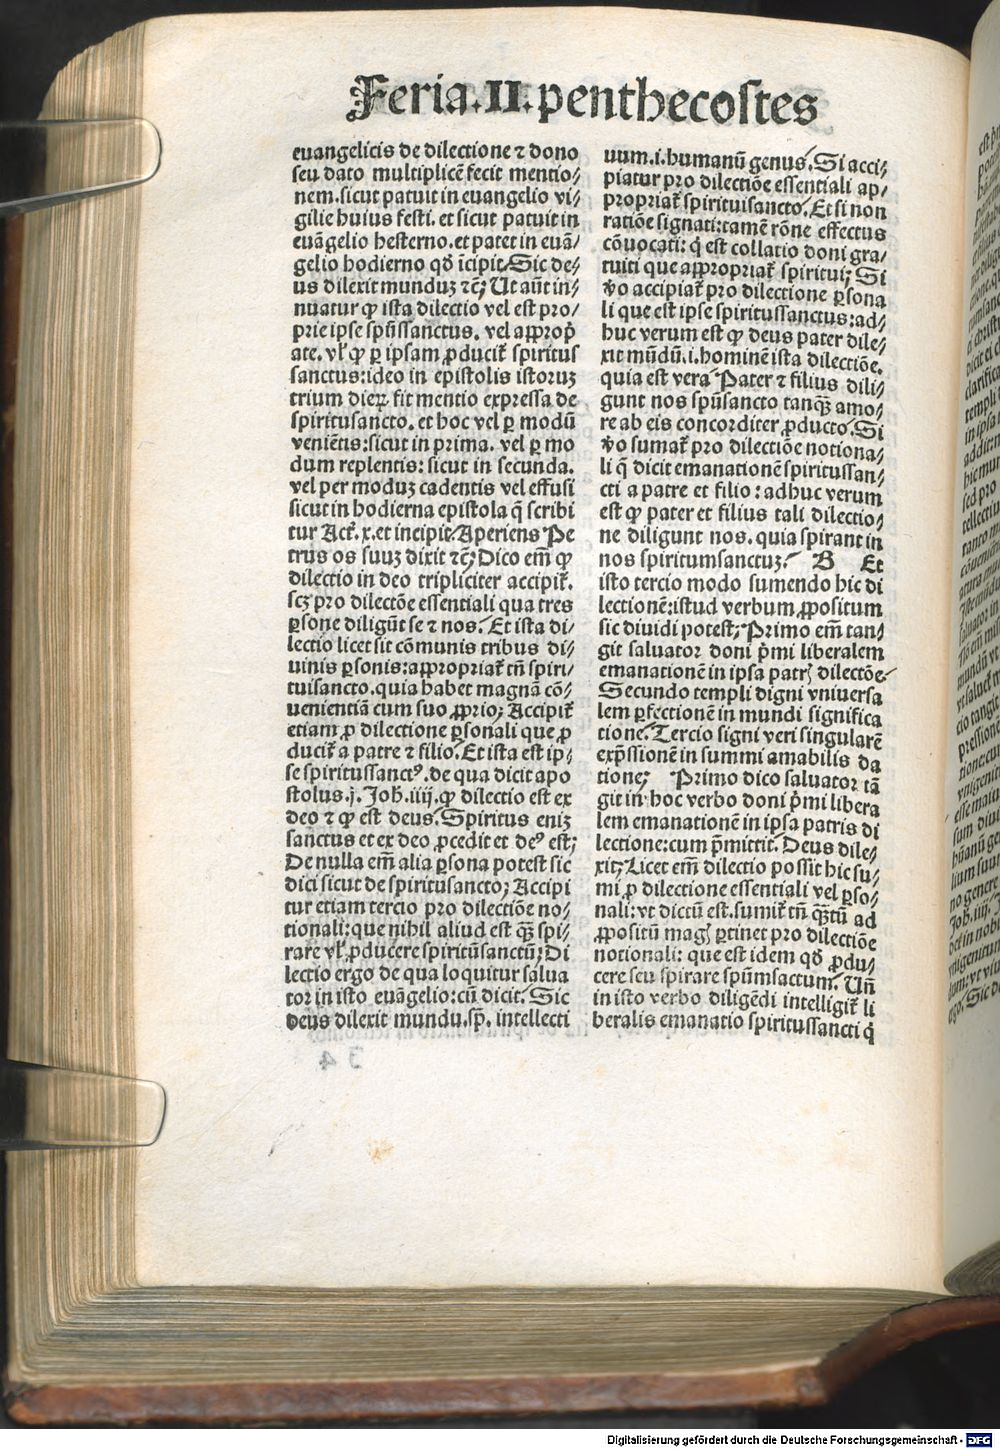 Feria.II.penthecostes
euangelicis de dilectione ⁊ dono
seu dato multiplicē fecit mentio⸗
nem.sicut patuit in euangelio vi⸗
gilie huius festi.et sicut patuit in
euāgelio hesterno.et patet in euā⸗
gelio hodierno qđ īcipit/Sic de⸗
us dilexit munduꝫ ⁊cꝭ Ut aūt in⸗
nuatur ꝙ ista dilectio vel est pro⸗
prie ipse spūssanctus. vel approp̄
ate. vl̄ ꝙ ꝑ ipsam ꝓducit̄ spiritus
sanctus:ideo in epistolis istoruꝫ
trium dieꝝ fit mentio expressa de
spiritusancto. et hoc vel ꝑ modū
veniētis:sicut in prima. vel ꝑ mo
dum replentis: sicut in secunda.
vel per moduꝫ cadentis vel effusi
sicut in hodierna epistola q̄ scribi
tur Act̄. x. et incipit.Aperiens Pe
trus os suuꝫ dixit ⁊cꝭ Dico em̄ ꝙ
dilectio in deo tripliciter accipit̄.
scꝫ pro dilectōe essentiali qua tres
ꝑsone diligūt se ⁊ nos. Et ista di⸗
lectio licet sit cōmunis tribus di⸗
uinis ꝑsonis:appropriat̄ tn̄ spiri⸗
tuisancto.quia habet magnā cō⸗
uenientiā cum suo ꝓprio; Accipit̄
etiam ꝓ dilectione ꝑsonali que ꝓ
ducit̄ a patre ⁊ filio. Et ista est ip⸗
se spiritussanctꝰ.de qua dicit apo
stolus.j. Joh. iiij. ꝙ dilectio est ex
deo ⁊ ꝙ est deus. Spiritus eniꝫ
sanctus et ex deo ꝓcedit et deꝰ est;
De nulla em̄ alia ꝑsona potest sic
dici sicut de spiritusancto; Accipi
tur etiam tercio pro dilectiōe no⸗
tionali:que nihil aliud est q̄ꝫ spi⸗
rare vl̄ ꝓducere spiritūsanctū; Di
lectio ergo de qua loquitur salua
tor in isto euāgelio:cū dicit. Sic
deus dilexit mundu.sp̄. intellecti
uum.i.humanū genus. Si acci⸗
piatur pro dilectiōe essentiali ap⸗
propriat̄ spirituisancto. Et si non
ratiōe signati:tamē rōne effectus
cōuocati: q̄ est collatio doni gra⸗
tuiti que appropriat̄ spiritui; Si
ꝟo accipiat̄ pro dilectione ꝑsona
li que est ipse spiritussanctus:ad⸗
huc verum est ꝙ deus pater dile⸗
xit mūdū.i.hominē ista dilectiōe.
quia est vera Pater ⁊ filius dili⸗
gunt nos spūsancto tanq̄ꝫ amo⸗
re ab eis concorditer ꝓducto. Si
ꝟo sumat̄ pro dilectiōe notiona⸗
li q̄ dicit emanationē spiritussan⸗
cti a patre et filio : adhuc verum
est ꝙ pater et filius tali dilectio⸗
ne diligunt nos. quia spirant in
nos spiritumsanctuꝫ. B Et
isto tercio modo sumendo hic di
lectionē:istud verbum ꝓpositum
sic diuidi potest; Primo em̄ tan⸗
git saluator doni p̄mi liberalem
emanationē in ipsa patrꝭ dilectōe
Secundo templi digni vniuersa
lem ꝑfectionē in mundi significa
tione. Tercio signi veri singularē
exp̄ssionē in summi amabilis da
tione; Primo dico saluator tā
git in hoc verbo doni p̄mi libera
lem emanationē in ipsa patris di
lectione:cum p̄mittit. Deus dile⸗
xit; Licet em̄ dilectio possit hic su⸗
mi ꝓ dilectione essentiali vel ꝑso⸗
nali:vt dictū est.sumit̄ tn̄ q̄ꝫtū ad
ꝓpositū magꝭ ꝑtinet pro dilectiōe
notionali: que est idem qđ ꝓdu⸗
cere seu spirare spūmsactum. Un̄
in isto verbo diligēdi intelligit̄ li
beralis emanatio spiritussancti q̄
Digitalisierung gefördert durch die Deutsche Forschungsgemeinschaft - DFG